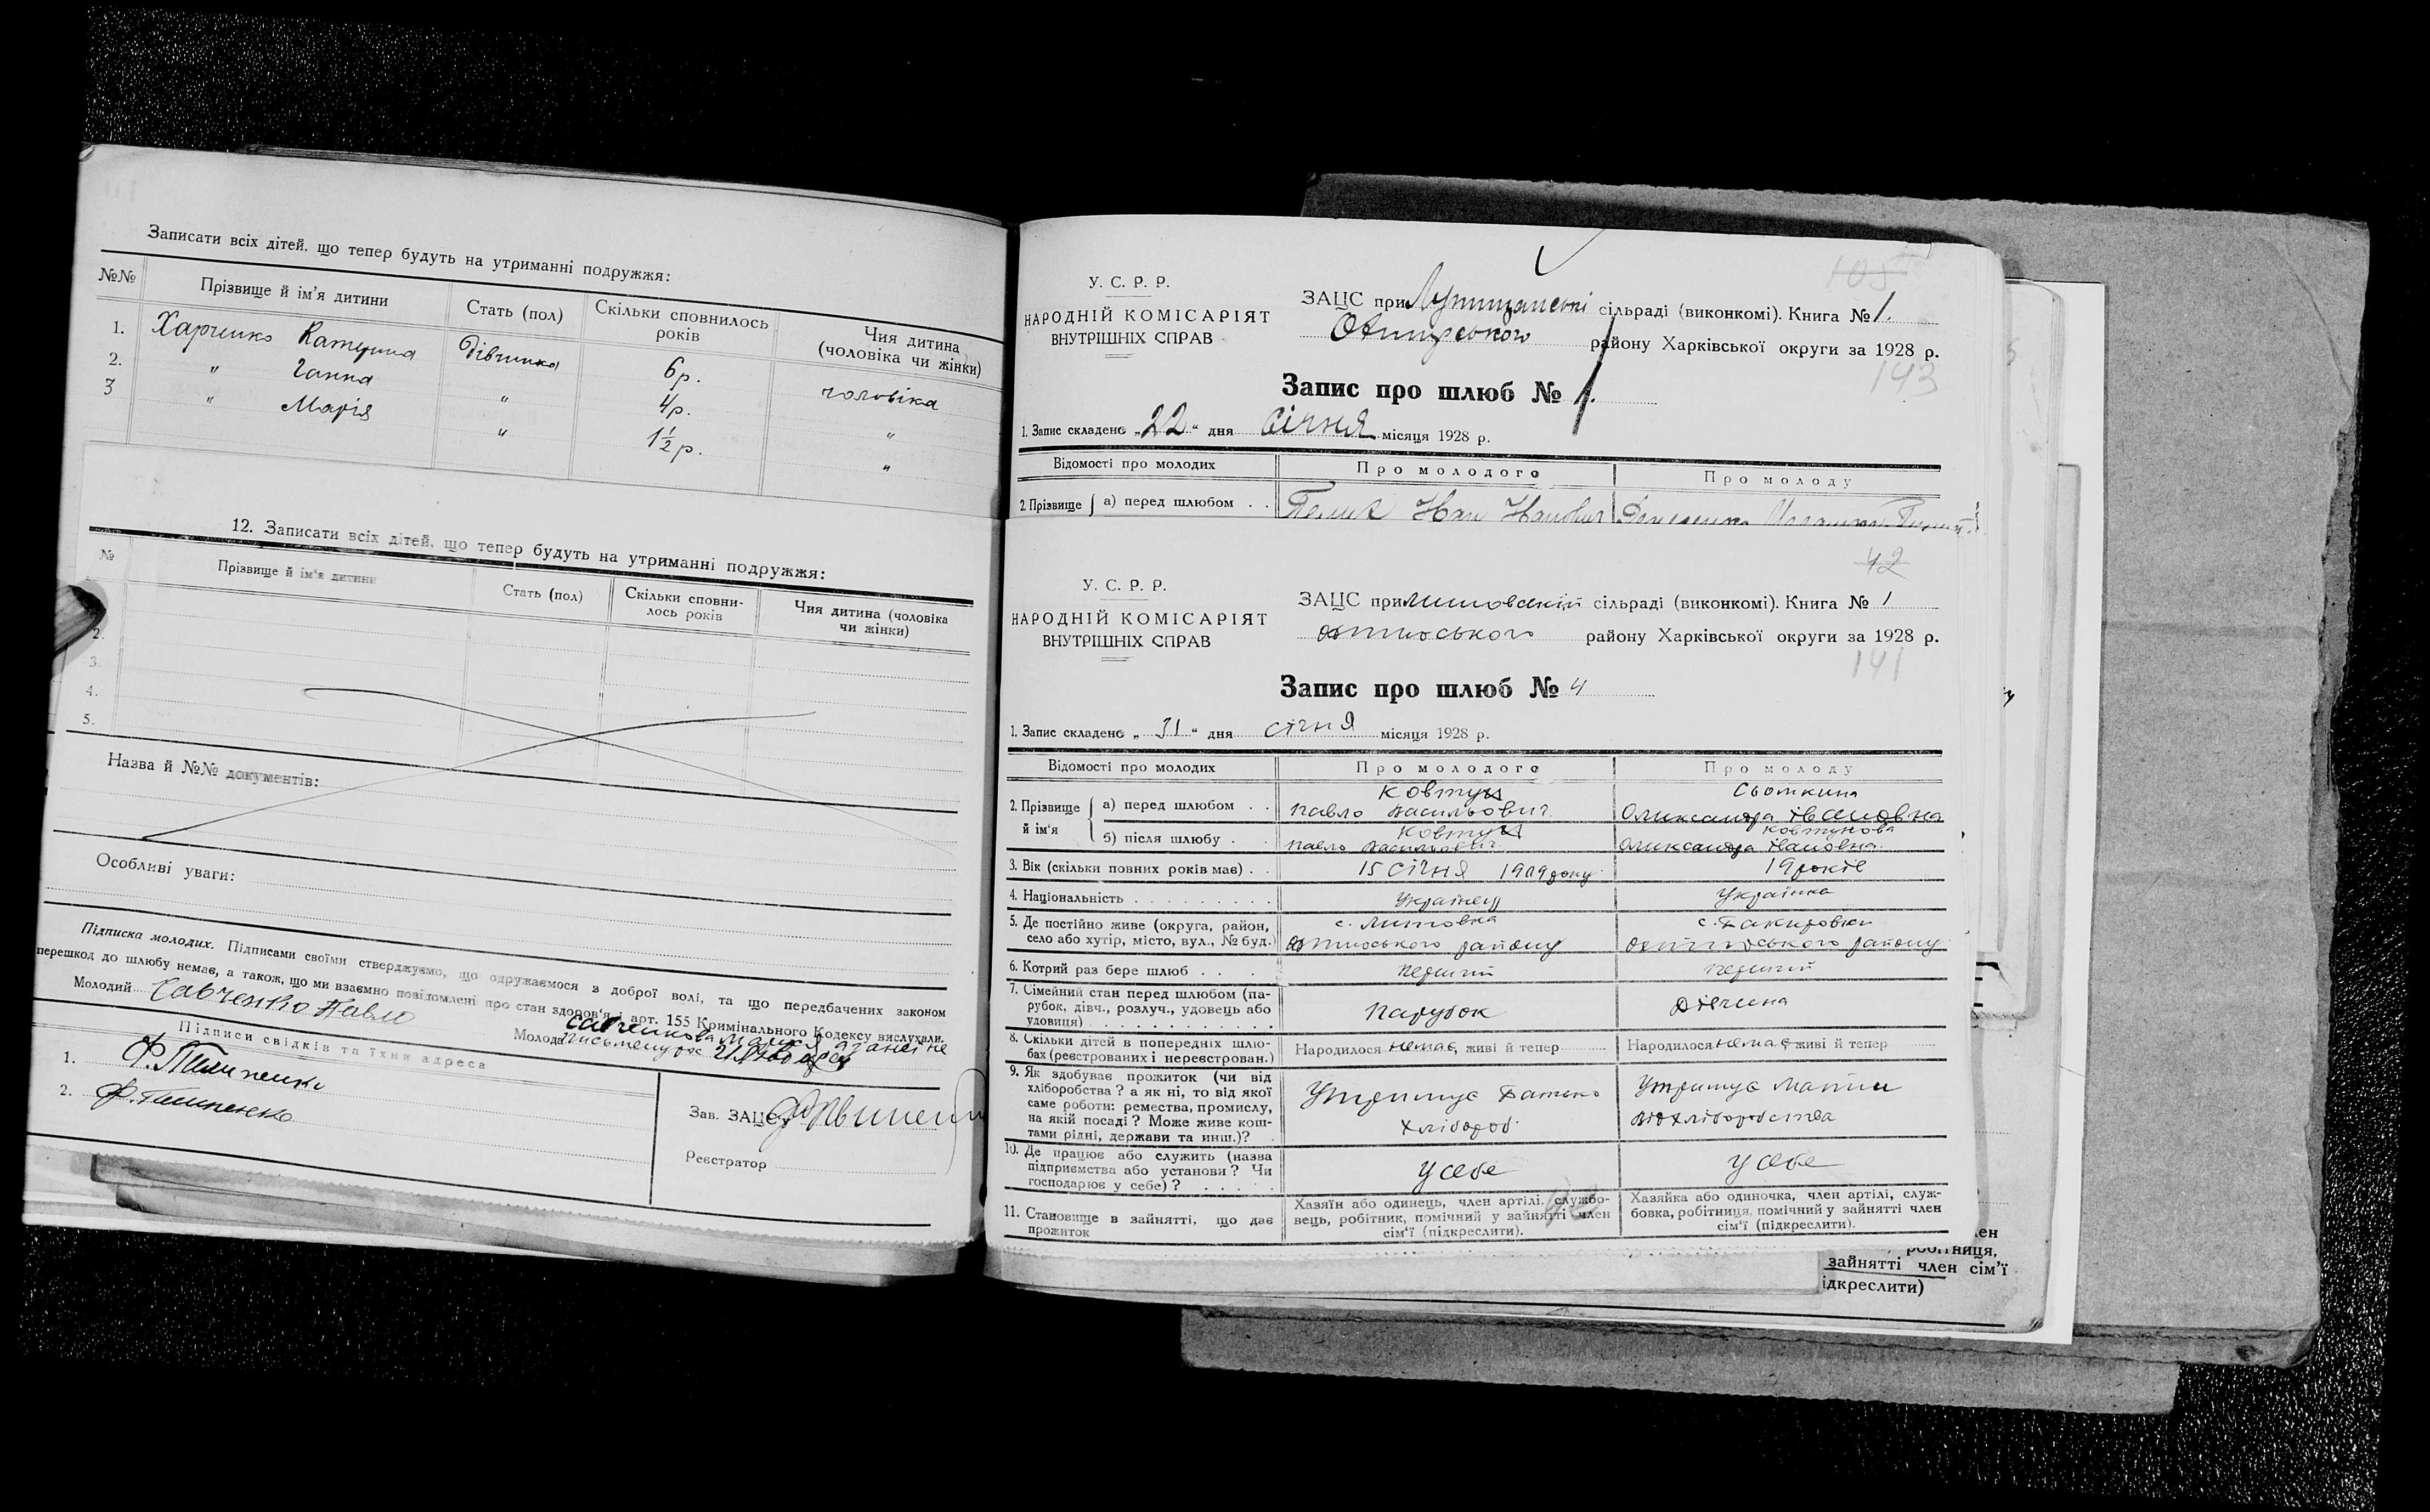 Записати всіх дітей, що тепер будуть на утриманні подружжя:
№№ Прізвище й ім'я дитини Стать (пол) Скільки сповнилось років Чия дитина (чоловіка чи жінки)
1. Харченко Катерина дівчинка 6 р. чоловіка
2. " Ганна " 4 р. "
3 " Марія " 1½ р. "
12. Записати всіх дітей, що тепер будуть на утриманні подружжя:
№ Прізвище й ім'я дитини Стать (пол) Скільки сповнилось років Чия дитина (чоловіка чи жінки)
2.
3.
4.
5.
Назва й №№ документів:
Особливі уваги:
Підписка молодих. Підписами своїми стверджуємо, що одружаємося з доброї волі, та що передбачених законом
перешкод до шлюбу немає, а також, що ми взаємно повідомлені про стан здоров'я і арт. 155 Кримінального Кодексу вислухали.
Молодий Савченко Павло
Молода Савченкова Мария
Підписи свідків та їхня адреса
1. Ф. Пилипенко
2. Ф. Пилипенко
Зав. ЗАЦС'у
Реєстратор
У. С. Р. Р.
НАРОДНІЙ КОМІСАРІЯТ
ВНУТРІШНІХ СПРАВ
105
ЗАЦС при сільраді (виконкомі). Книга № 1.
Охтирського району Харківської округи за 1928 р.
143
Запис про шлюб № 1.
1. Запис складено „22" дня Січня місяця 1928 р.
Відомості про молодих Про молодого Про молоду
2. Прізвище а) перед шлюбом . .
42
У. С. Р. Р.
НАРОДНІЙ КОМІСАРІЯТ
ВНУТРІШНІХ СПРАВ
ЗАЦС при сільраді (виконкомі). Книга № 1
району Харківської округи за 1928 р.
141
Запис про шлюб № 4
1. Запис складено „31" дня січня місяця 1928 р.
Відомості про молодих Про молодого Про молоду
2. Прізвище й ім'я
а) перед шлюбом . . Ковтун Павло Васильович Сьоткина Олександра Івановна
б) після шлюбу . Ковтун Павло Васильович Ковтунова Олександра Івановна
3. Вік (скільки повних років має) . . 15 січня 1909 року 19 років
4. Національність . . . . . . . . . Українец Українка
5. Де постійно живе (округа, район,
село або хутір, місто, вул., № буд.) с. району с. Бакировки району
6. Котрий раз бере шлюб . . . перший перший
7. Сімейний стан перед шлюбом (парубок, дівч., розлуч., удовець або
удовиця) . . . . . . . . . . . Парубок Дівчина
8. Скільки дітей в попередніх шлюбах (реєстрованих і нереєстрован.) Народилося немає, живі й тепер Народилося немає живі й тепер
9. Як здобуває прожиток (чи від
хліборобства? а як ні, то від якої
саме роботи: ремества, промислу,
на якій посаді? Може живе коштами рідні, держави та инш.)? Утримує Батько хлібороб. Утримує мати від хліборобства
10. Де працює або служить (назва
підприємства або установи? Чи
господарює у себе)? . . . . . у себе у себе
11. Становище в зайнятті, що дає
прожиток
Хазяїн або одинець, член артілі, службовець, робітник, помічний у зайнятті член
сім'ї (підкреслити).
Хазяйка або одиночка, член артілі, службовка, робітниця, помічний у зайнятті член
сім'ї (підкреслити).
робітниця,
зайнятті член сім'ї
ідкреслити)